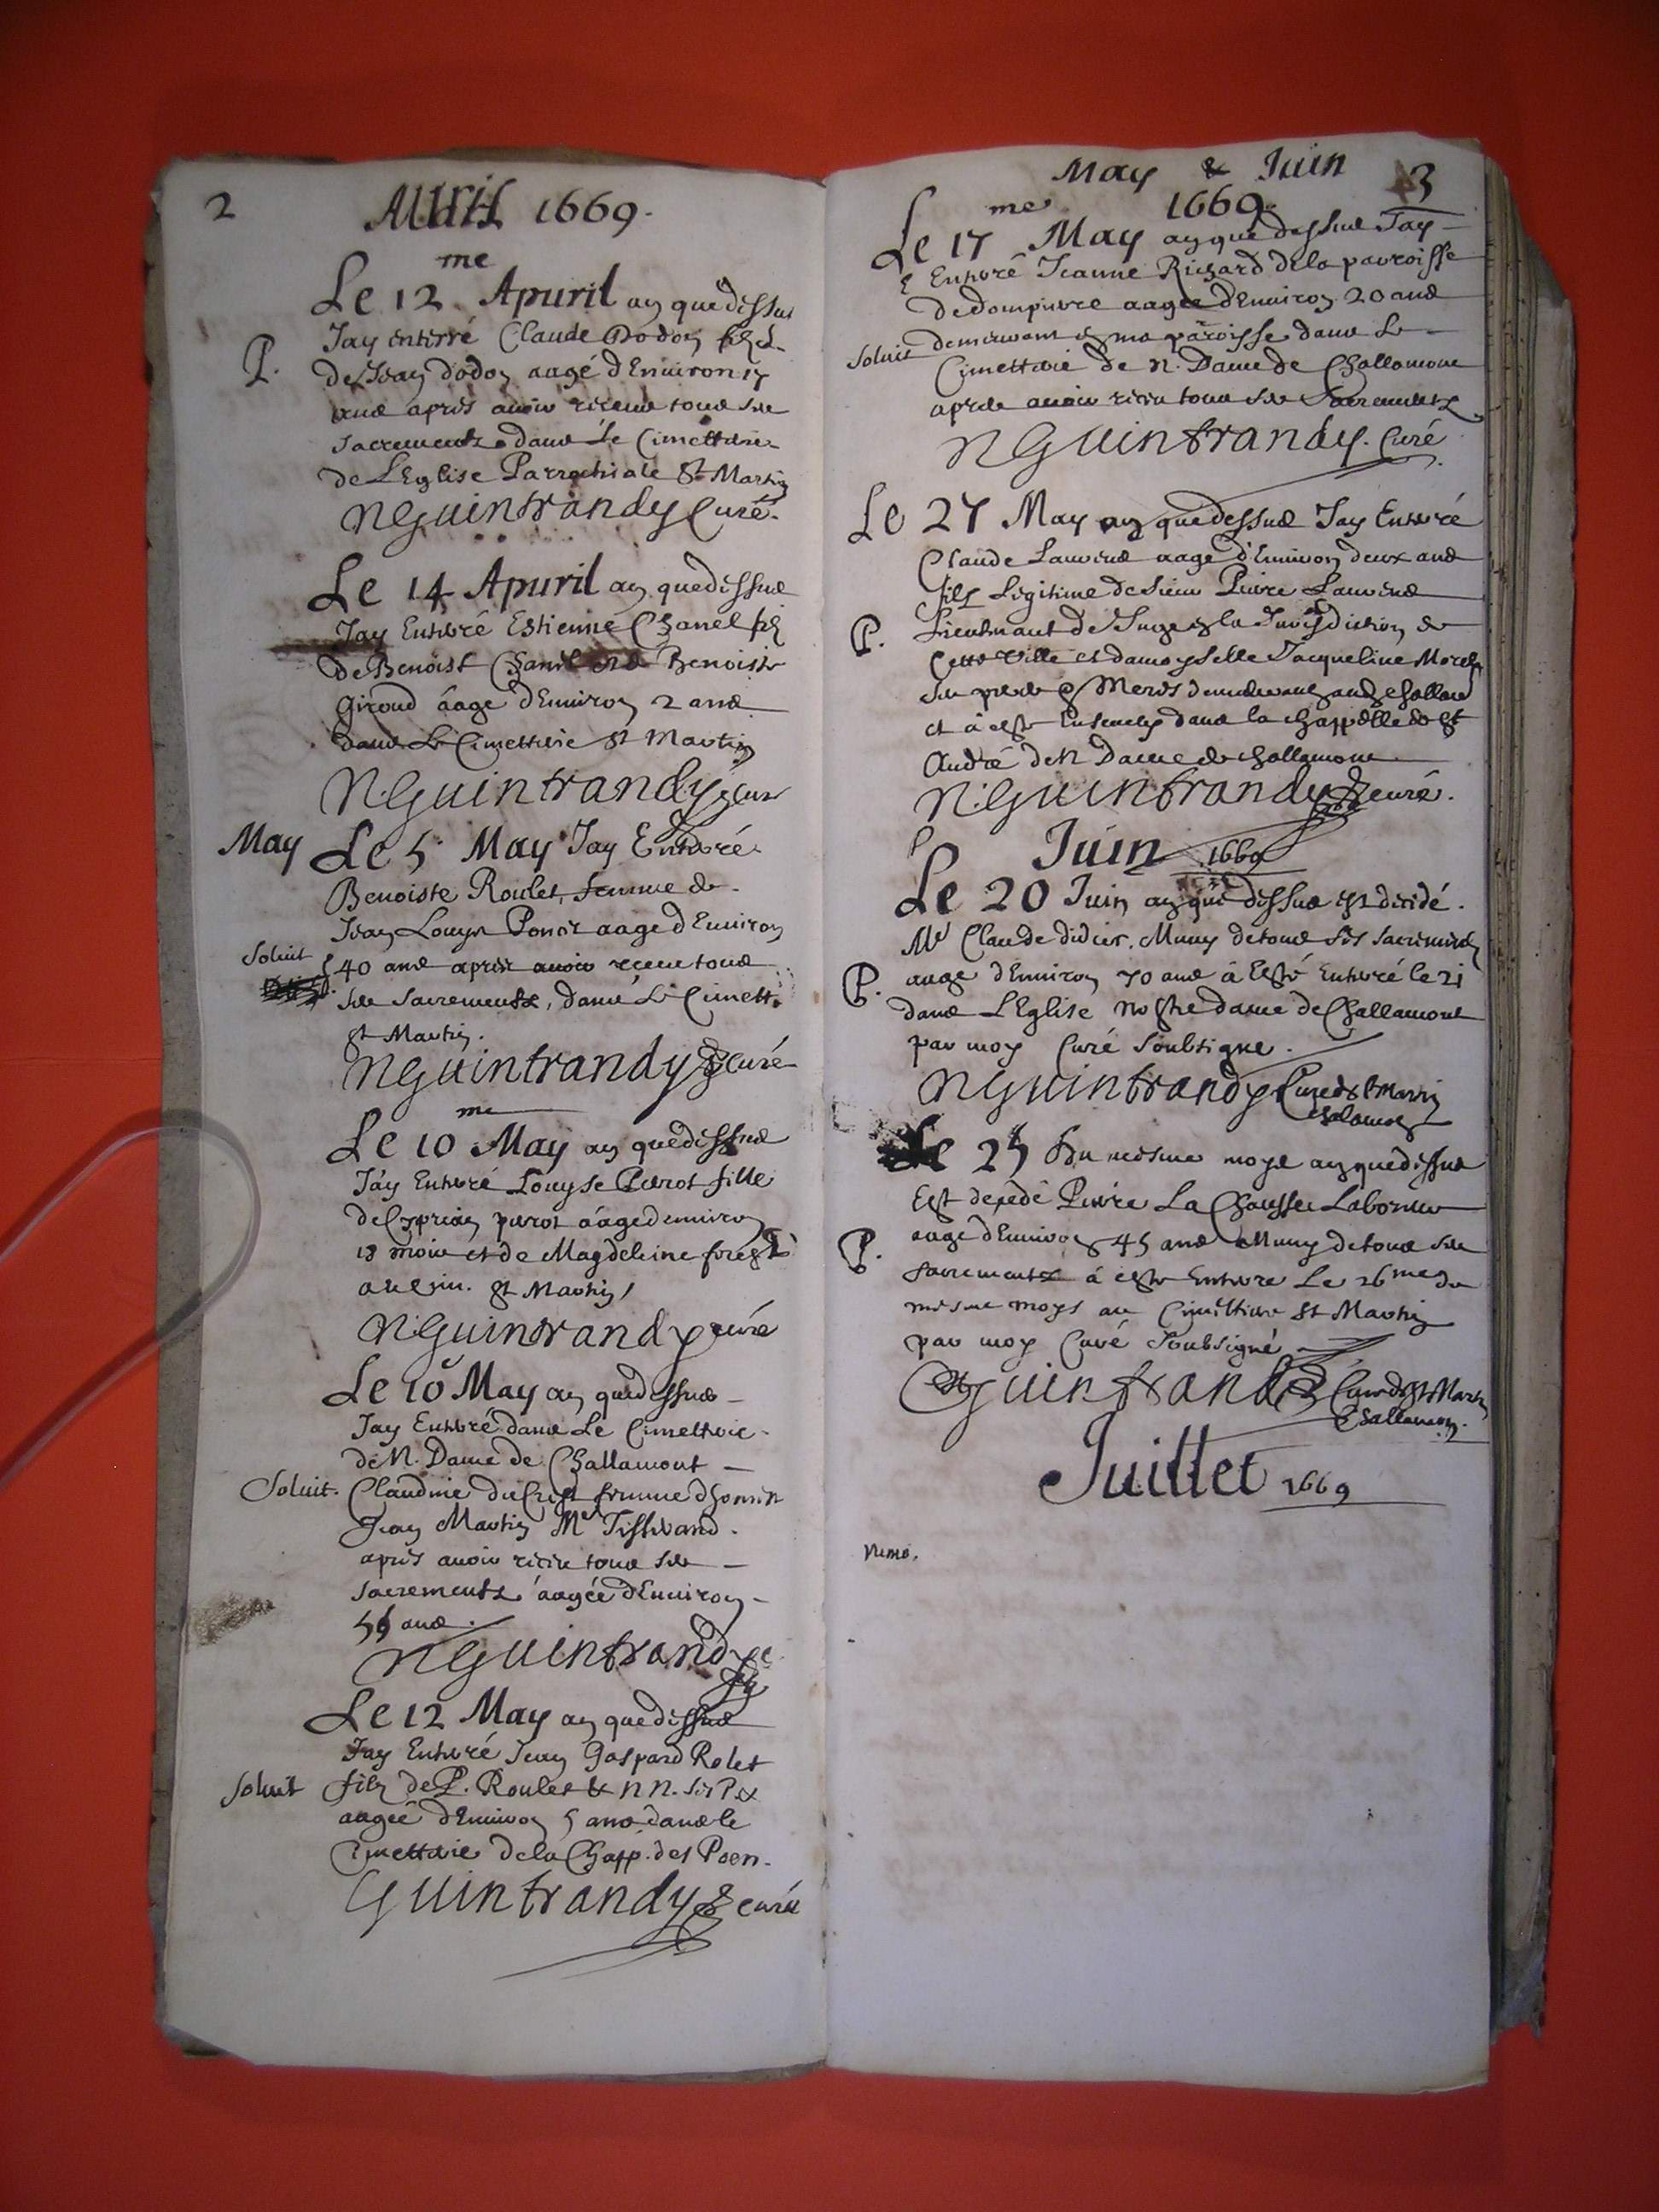 2
Auril 1669.
Le 12 me Apuril an que dessus
P.
Jay enterré Claude Dodon filz
de Jean dodon aagé d'Enuiron 17
ans apres auoir receue tous ses
sacrements dans le Cimettiere
de L'Eglise Parrochiale St Martin
NGuintrandy Curé.
Le 14 Apuril an que dessus
Jay Enterré Estienne Chanel filz
de Benoist Chanel et de Benoiste
Giroud âagé d'Enuiron 2 ans
dans Le Cimettiere St Martin
N.Guintrandy curé
May
Le 5 May Jay Enterré
Benoiste Roulet, femme de
Jean Louys Poncet aagé d'Enuiron
Soluit
40 ans apres auoir receue tous
ses sacrements, dans Le Cimett.
St Martin.
NGuintrandy curé
Le 10 me May an que dessus
J'ay Enterré Louyse Pierrot fille
de Cyprien pierrot aagé d'enuiron
18 mois et de Magdeleine
au Cim. St Martin
N.Guintrandy curé
Le 10 May an que dessus
Jay Enterré dans Le Cimettiere
de N. Dame de Challamont
Soluit.
Claudine du Crest femme d'honneste
Jean Martin Me Tisserand.
apres auoir receu tous ses
sacrements aagée d'Enuiron
ans.
NGuintrandy c
Le 12 May an que dessus
Jay Enterré Jean Gaspard Rolet
Soluit
filz de P. Roulet & N N. ses P. &
aagée d'Enuiron 5 ans dans le
Cimettiere de la Chapp. des Poen.
Guintrandy curé
May & Juin
3
1669.
Le 17 me May an que dessus Jay
Enterré Jeanne Richard de la parroisse
de dompierre aagée d'Enuiron 20 ans
Soluit
demeurant en ma paroisse dans Le
Cimettiere de N. Dame de Challamont
apres auoir receu tous ses Sacrements
NGuintrandy. Curé
Le 27 May an que dessus Jay Enterré
Claude Laurens aagé d'Enuiron deux ans
filz Legitime de Sieur Pierre Laurens
P.
Lieutenant de Juge en la Jurisdiction de
Cette Ville et damoyselle Jacqueline Morel
ses pere & Meres demeurans aud Challam
et à esté Enseuely dans la chappelle de St
André de N Dame de Challamont
N.Guintrandy curé.
Juin 1669
Le 20 Juin an que dessus est decedé.
Me Claude didier, Muny de tous ses sacrements
P.
aagé d'Enuiron 70 ans à Esté Enterré le 21
dans L'Eglise nostre dame de Challamont
par moy Curé Soubsigne.
NGuintrandy Curé de St Martin
Chalamon
Le 25 du mesme moys an que dessus
Est decedé Pierre La Chaussee Laboureur
P.
aagé d'Enuiron 45 ans Muny de tous ses
sacrements à esté Enterre Le 26 me du
mesme moys au Cimettiere St Martin
par moy Curé Soubsigné
Guintrandy Curé de St Martin
Challamon.
Juillet 1669
Nemo.